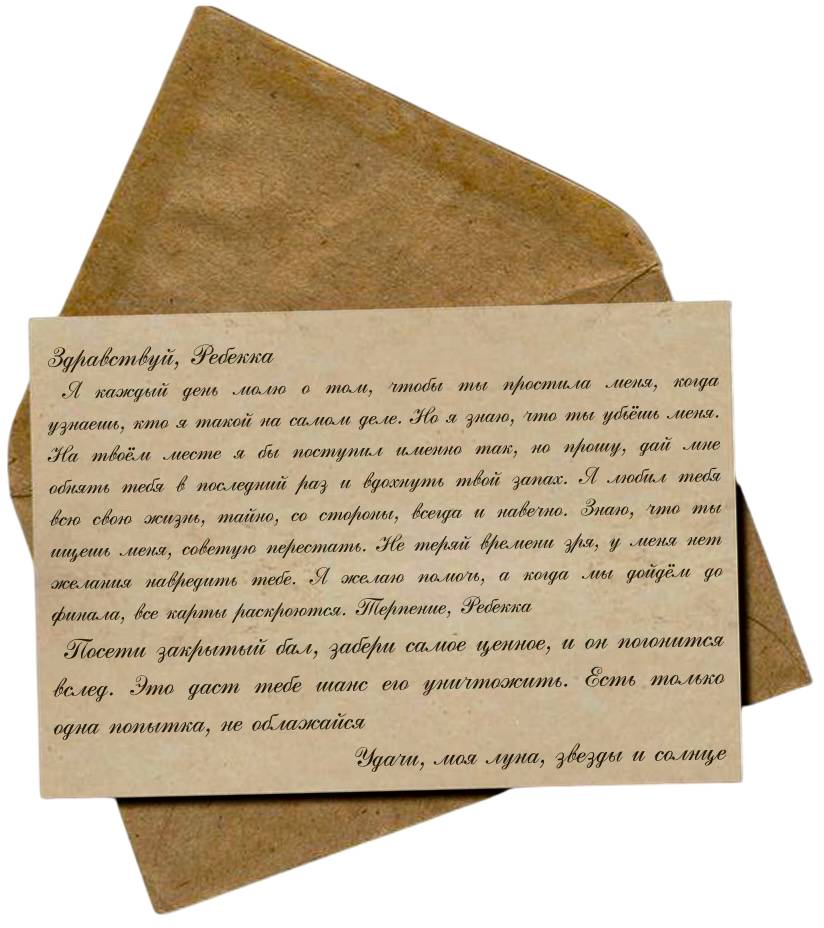 Здравствуй, Ребекка
Я каждый день молю о том, чтобы ты простила меня, когда
узнаешь, кто я такой на самом деле. Но я знаю, что ты убьёшь меня.
На твоём месте я бы поступил именно так, но прошу, дай мне
обнять тебя в последний раз и вдохнуть твой запах. Я любил тебя
всю свою жизнь, тайно, со стороны, всегда и навечно. Знаю, что ты
ищешь меня, советую перестать. Не теряй времени зря, у меня нет
желания навредить тебе. Я желаю помочь, а когда мы дойдём до
финала, все карты раскроются. Терпение, Ребекка
Посети закрытый бал, забери самое ценное, и он погонится
вслед. Это даст тебе шанс его уничтожить. Есть только
одна попытка, не облажайся
Удачи, моя луна, звезды и солнце